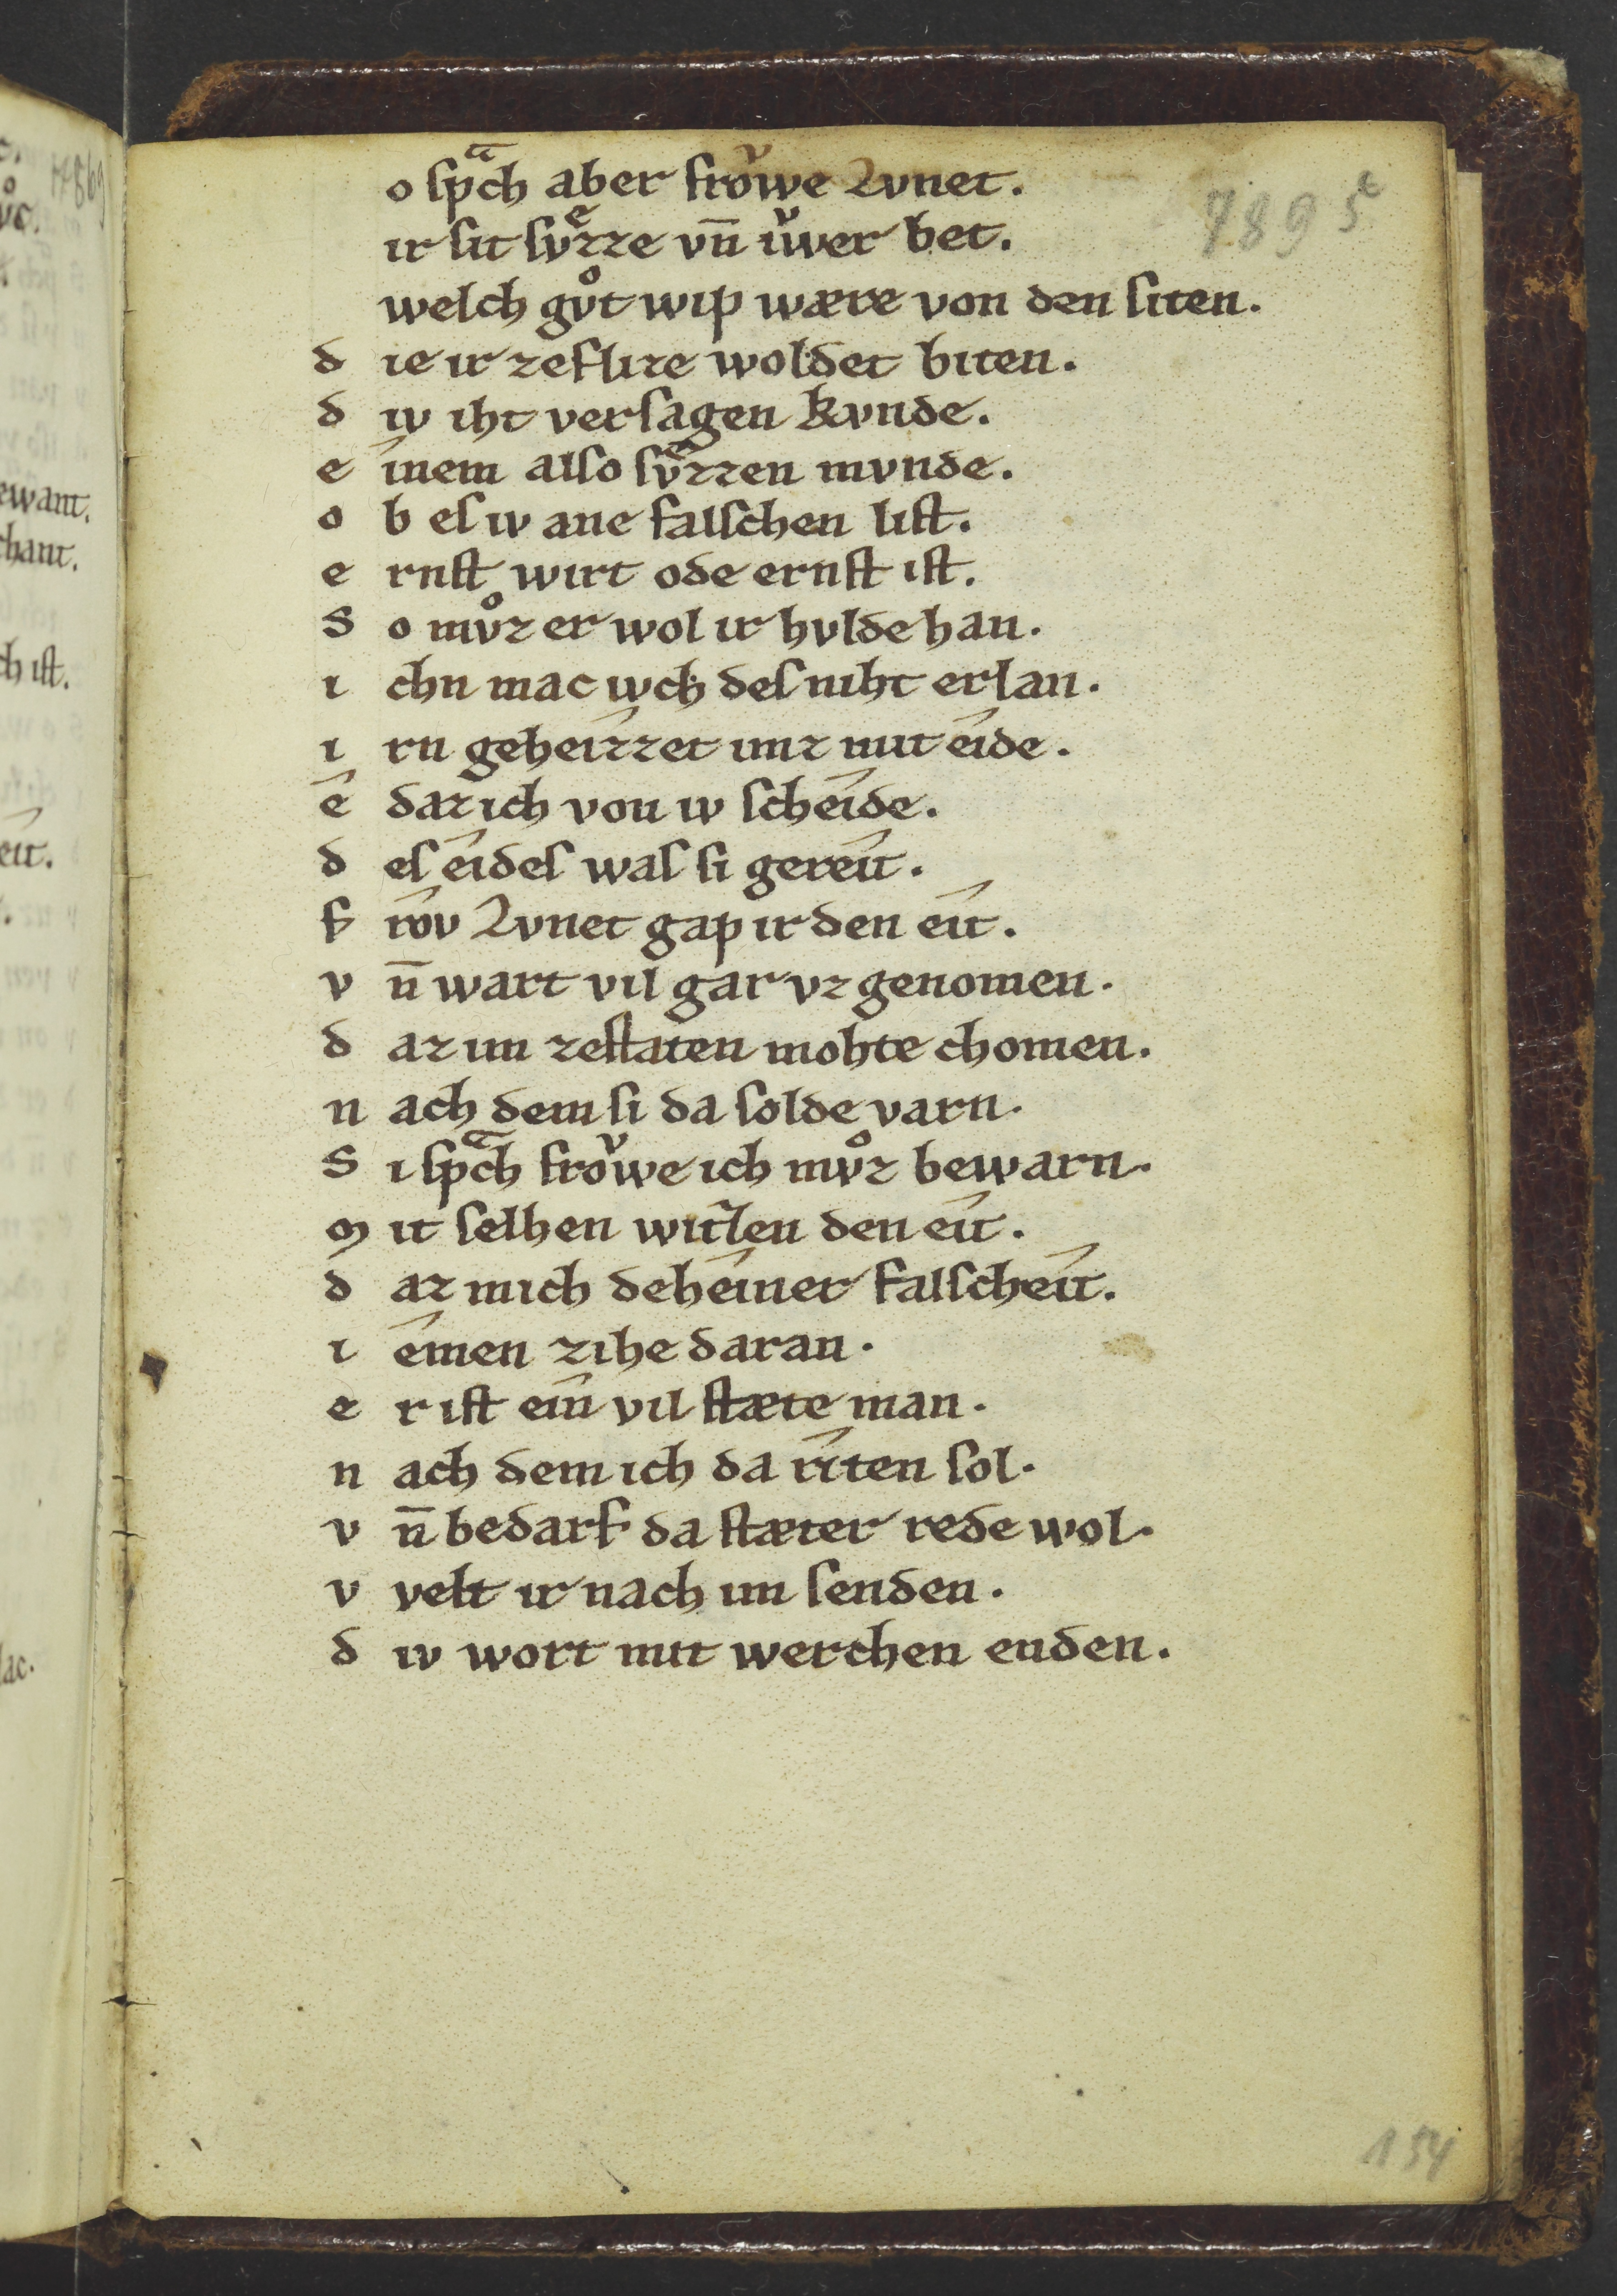 o spͣch aber froͮwe Lvnet.
ir sit svͤzze vn̄ iͮwer bet.
welch gvͦt wip wære von den siten.
d ie ir zeflize woldet biten.
d iv iht versagen kvnde.
e inem also svͤzzen mvnde.
o b es iv ane falschen list.
e rnst wirt ode ernst ist.
S o mvͦz er wol ir hvlde han.
i chn mac ivch des niht erlan.
i rn geheizzet imz mit eide.
e daz ich von iv scheide.
d es eides was si gereit.
f roͮv Lvnet gap ir den eit.
v n̄ wart vil gar vz genomen.
d az im zestaten mohte chomen.
n ach dem si da solde varn.
S i spͣch froͮwe ich mvͦz bewarn.
m it selhen witzen den eit.
d az mich deheiner falscheit.
i emen zihe daran.
e r ist ein vil stæte man.
n ach dem ich da riten sol.
v n̄ bedarf da stæter rede wol.
v velt ir nach im senden.
d iv wort mit werchen enden.
7895
154